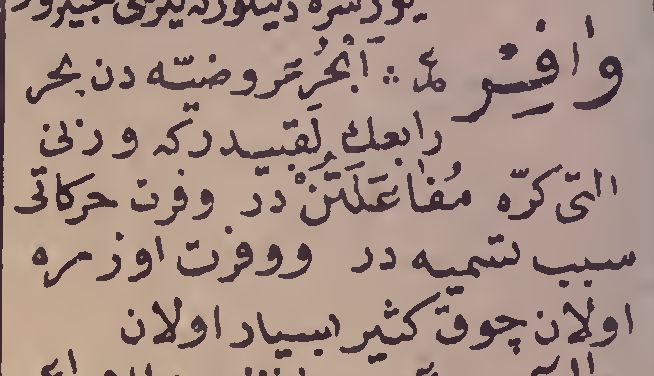 وَافِرْ ع ؞ اَبْحُرِ عروضيّه دن بحر
رابعك لَقَبيدركه وزنى
التى كرّه مُفَاعَلَتَنْ در وفرت حركاتى
سبب تسميه در ووفرت اوزره
اولان چوق كثير بسيار اولان